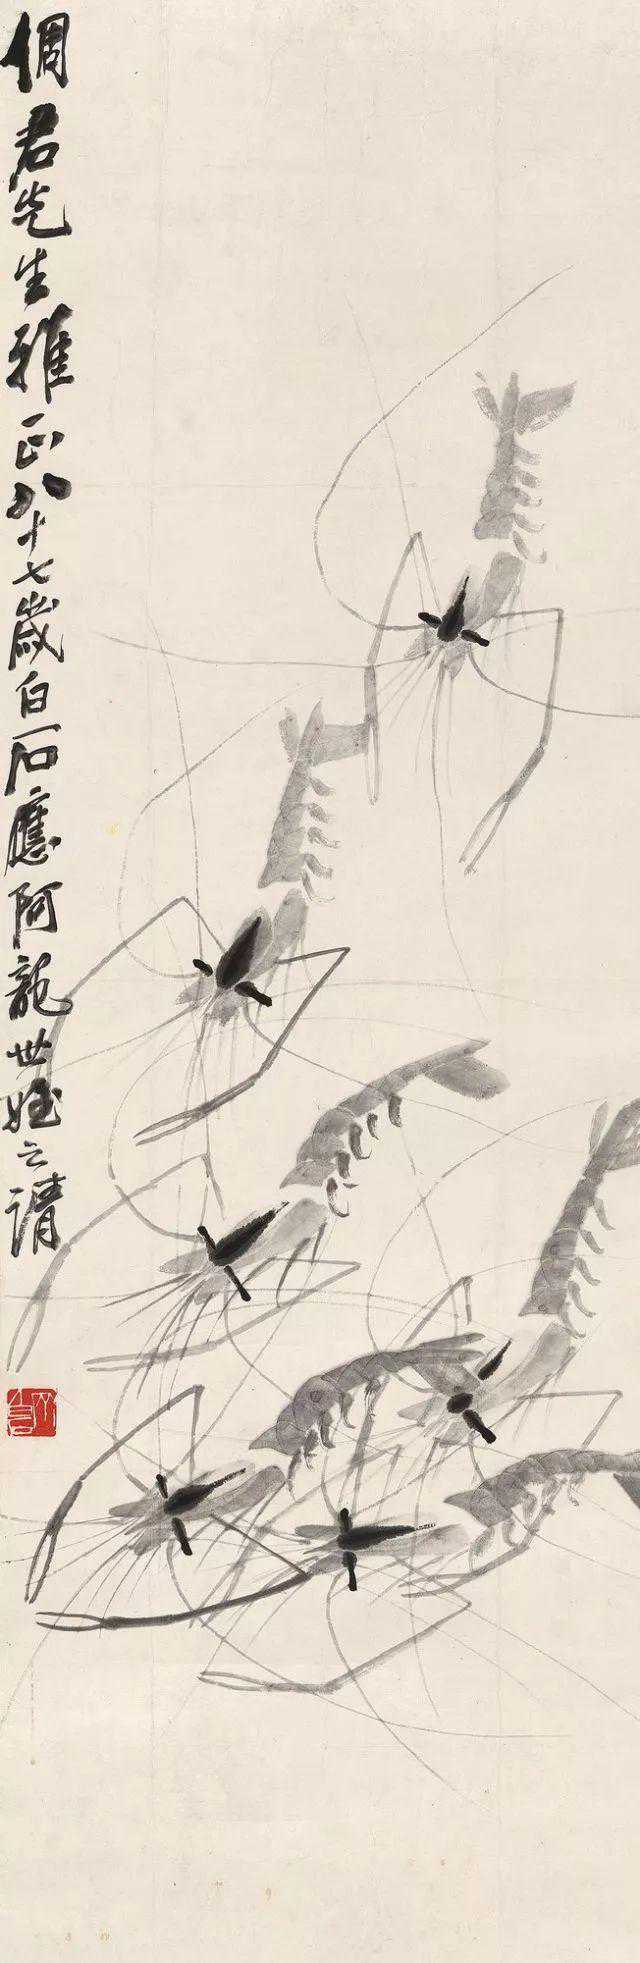 倜君先生雅正八十七歲白石應阿龍世姪之請